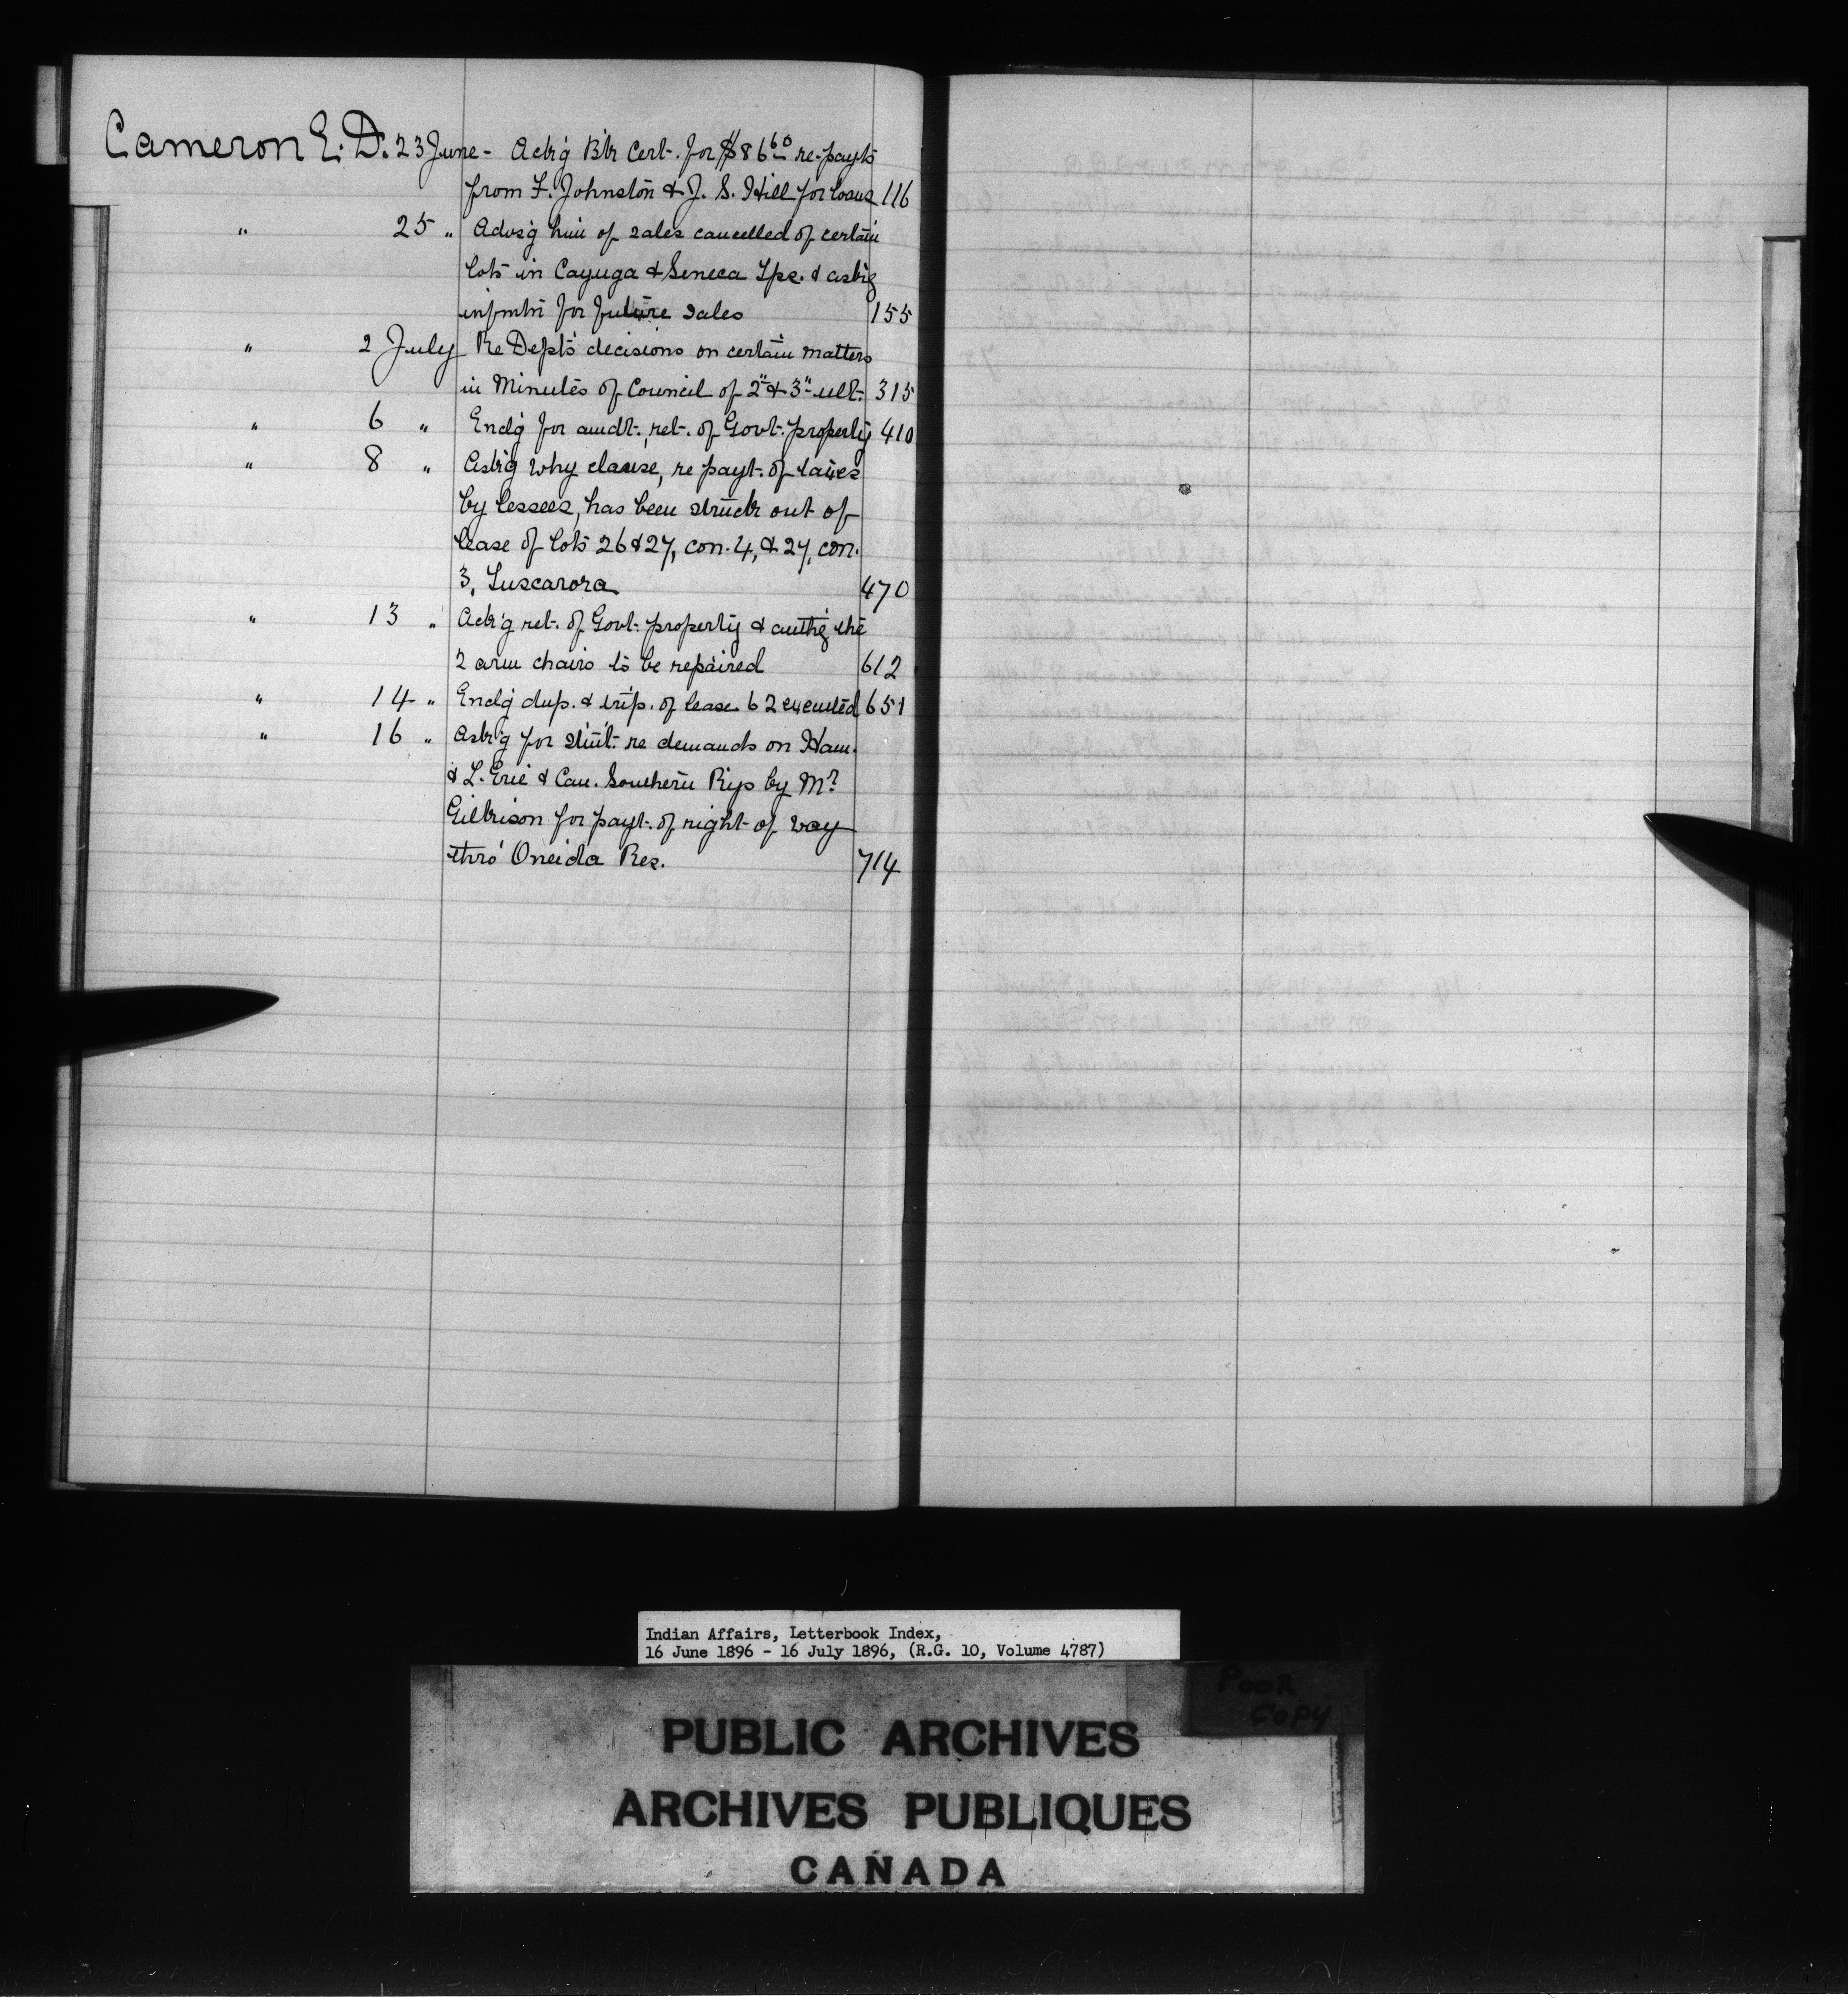 Cameron E. D. 23 June - Ack'g Bk Cert. for $86 60 re-payts
from F. Johnston & J. S. Hill for loans 116
" 25 " Advs'g him of sales cancelled of certain
lots in Cayuga & Seneca Tps. & ask'g
infmtn for future sales 155
" 2 July Re Dept's decisions on certain matters
in Minutes of Council of 2" & 3" ult. 315
" 6 " Enclg for amdt., ret. of Govt. property 410
" 8 " Ask'g why clause, re payt. of taxes
by lessees, has been struck out of
lease of lots 26 & 27, con. 4, & 27, con.
3, Tuscarora 470
" 13 " Ack'g ret. of Govt. property & auth'g the
2 arm chairs to be repaired 612
" 14 " Encl'g dup. & trip. of lease 62 executed 651
" 16 " Ask'g for stmt. re demands on Ham.
& L. Erie & Can. Southern Rys by Mr
Gilkison for payt. of right of way
thro' Oneida Res. 714
Indian Affairs, Letterbook Index,
16 June 1896 - 16 July 1896, (R.G. 10, Volume 4787)
POOR
COPY
PUBLIC ARCHIVES
ARCHIVES PUBLIQUES
CANADA